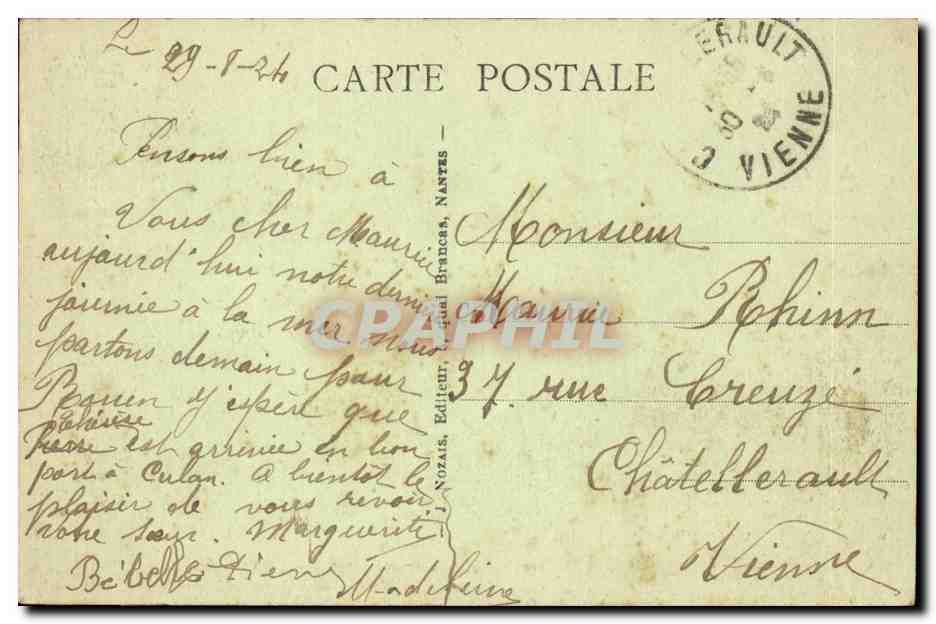 Le 29-8-24
CARTE POSTALE
Pensons bien à
Vous cher Maurice
aujourd'hui notre dernière
journée à la mer nous
partons demain pour
Rouen j'espère que
Thérèse
est arrivée en bon
port à Culan. A bientôt le
plaisir de vous revoir
votre sœur. Marguerite
Madeleine
NOZAIS, Editeur, quai Brancas, NANTES
Monsieur
Maurice Rhinn
37. rue Creuzé
Châtellerault
Vienne
ERAULT
30
VIENNE
CPAPHIL